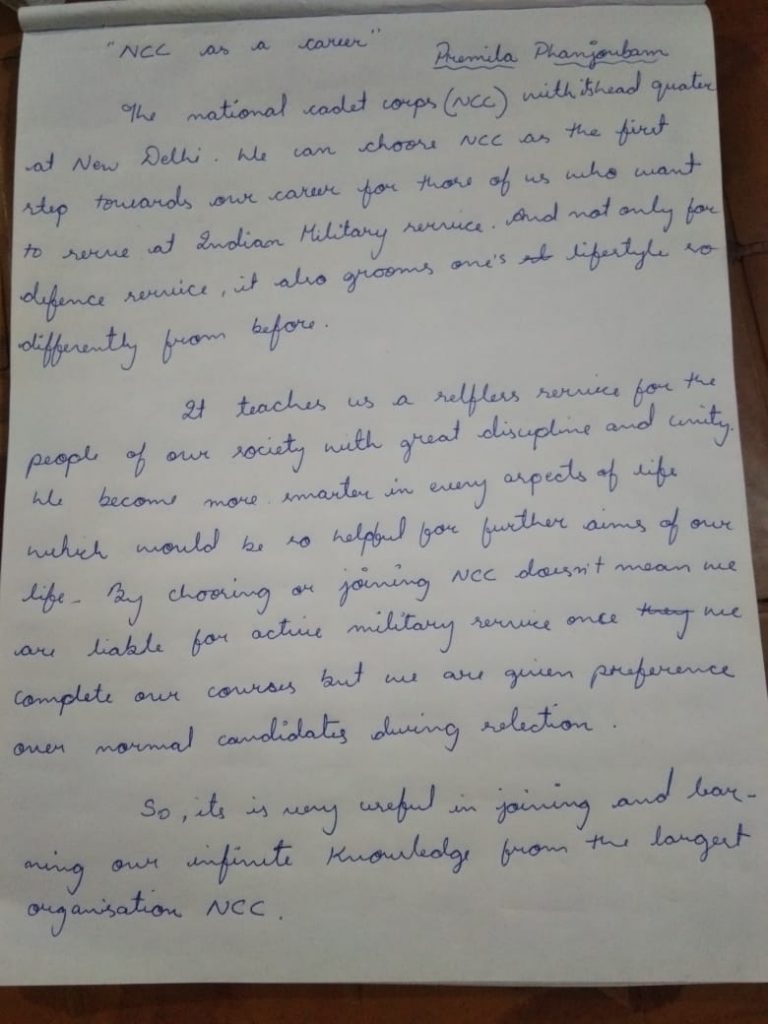 "NCC as a career" Premila Phanjoubam
The national cadet corps (NCC) with its head quater
at New Delhi. We can choose NCC as the first
step towards our career for those of us who want
to serve at Indian Military service. And not only for
defence service, it also grooms one's lifestyle so
differently from before.
It teaches us a selfless service for the
people of our society with great discipline and unity.
We become more smarter in every aspects of life
which would be so helpful for further aims of our
life. By choosing or joining NCC doesn't mean we
are liable for active military service once they we
complete our courses but we are given preference
over normal candidates during selection.
So, its is very useful in joining and
our infinite knowledge from the largest
organisation NCC.